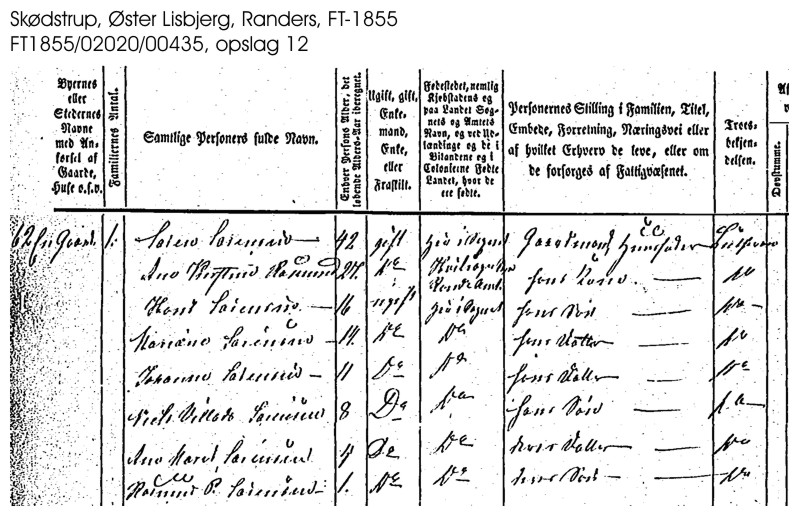 Skødstrup, Øster Lisbjerg, Randers, FT-1855
FT1855/02020/00435, opslag 12
Byernes
eller
Stedernes
Navne
med An-
førsel af
Gaarde,
Huse o.s.v.
Familiernes Antal.
Samtlige Personers fulde Navn.
Enhver Persons Alder, det
løbende Alders-Aar iberegnet.
Ugift, gift,
Enke-
mand,
Enke,
eller
Fraskilt.
Fødestedet, nemlig
Kjøbstadens eg
paa Landet Sog-
nets og Amtets
Navn, og ved Ud-
lændinge og de i
Bilandene og i
Colonierne Fødte
Landet, hvor de
ere fødte.
Personernes Stilling i Familien, Titel,
Embede, Forretning, Næringsvei eller
af hvilket Erhverv de leve, eller om
de forsørges af Fattigvæsenet.
Troes-
bekjen-
delsen.
Døvstumme.
62 En Gaard. 1. Søren Sørensen 42 gift her i Sognet Gaardmand, Huusfader
Ane 27. Do hans Kone Do
Hans Sørensen 16 ugift her i Sognet hans Søn Do
Mariane Sørensen 14. Do Do hans Datter Do
Johanne Sørensen 11 Do Do hans Datter Do
Niels Sørensen 8 Do Do hans Søn Do
Ane Maret Sørensen Do Do Datter Do
Rasmus P. Sørensen 1. Do Do Søn Do